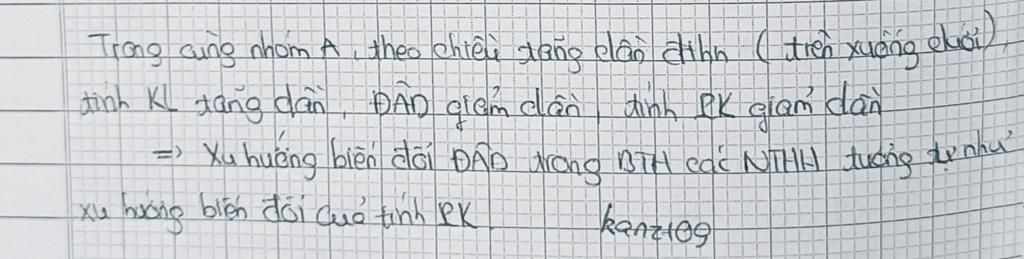 Trong cùng nhóm A, theo chiều tăng dần đthn (trên xuống dưới),
tính KL tăng dần, ĐAĐ giảm dần, tính PK giảm dần
=> Xu hướng biến đổi ĐAĐ trong BTH các NTHH tương tự như
xu hướng biến đổi của tính PK
kanz109